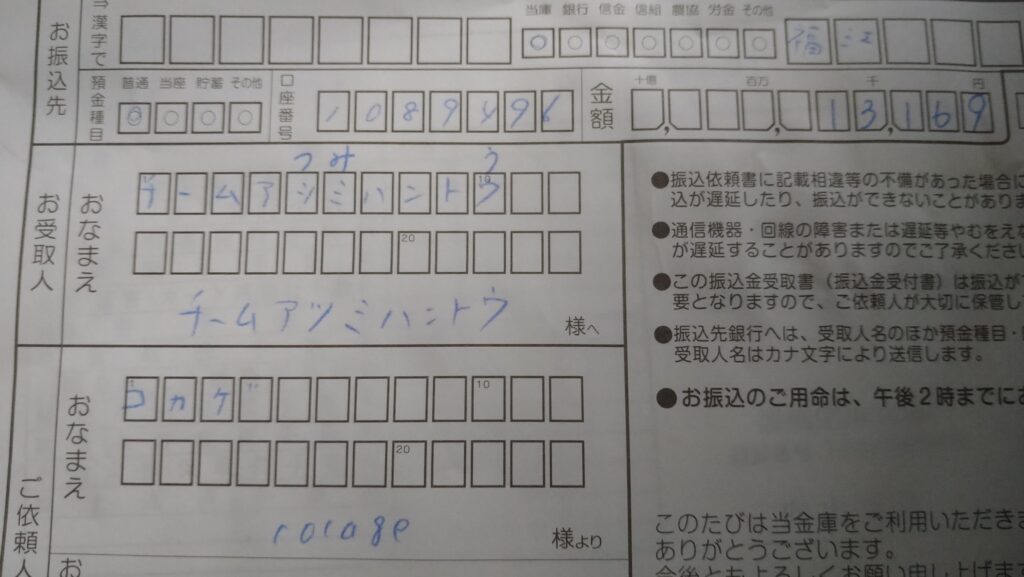 漢字で
当庫 銀行 信金 信組 農協 労金 その他
福江
お振込先
預金種目
普通 当座 貯蓄 その他
口座番号
1089496
金額
十億 百万 千 円
13,169
つみ う
お受取人
おなまえ
チームアシミハントウ
20
チームアツミハントウ
様へ
ご依頼人
おなまえ
コカゲ
10
20
cocage
様より
お
●振込依頼書に記載相違等の不備があった場合に
込が遅延したり、振込ができないことがありま
●通信機器・回線の障害または遅延等やむをえな
が遅延することがありますのでご了承ください
●この振込金受取書（振込金受付書）は振込が
要となりますので、ご依頼人が大切に保管し
●振込先銀行へは、受取人名のほか預金種目・
受取人名はカナ文字により送信します。
●お振込のご用命は、午後2時までにお
このたびは当金庫をご利用いただきま
ありがとうございます。
今後ともよろしくお願い申し上げます